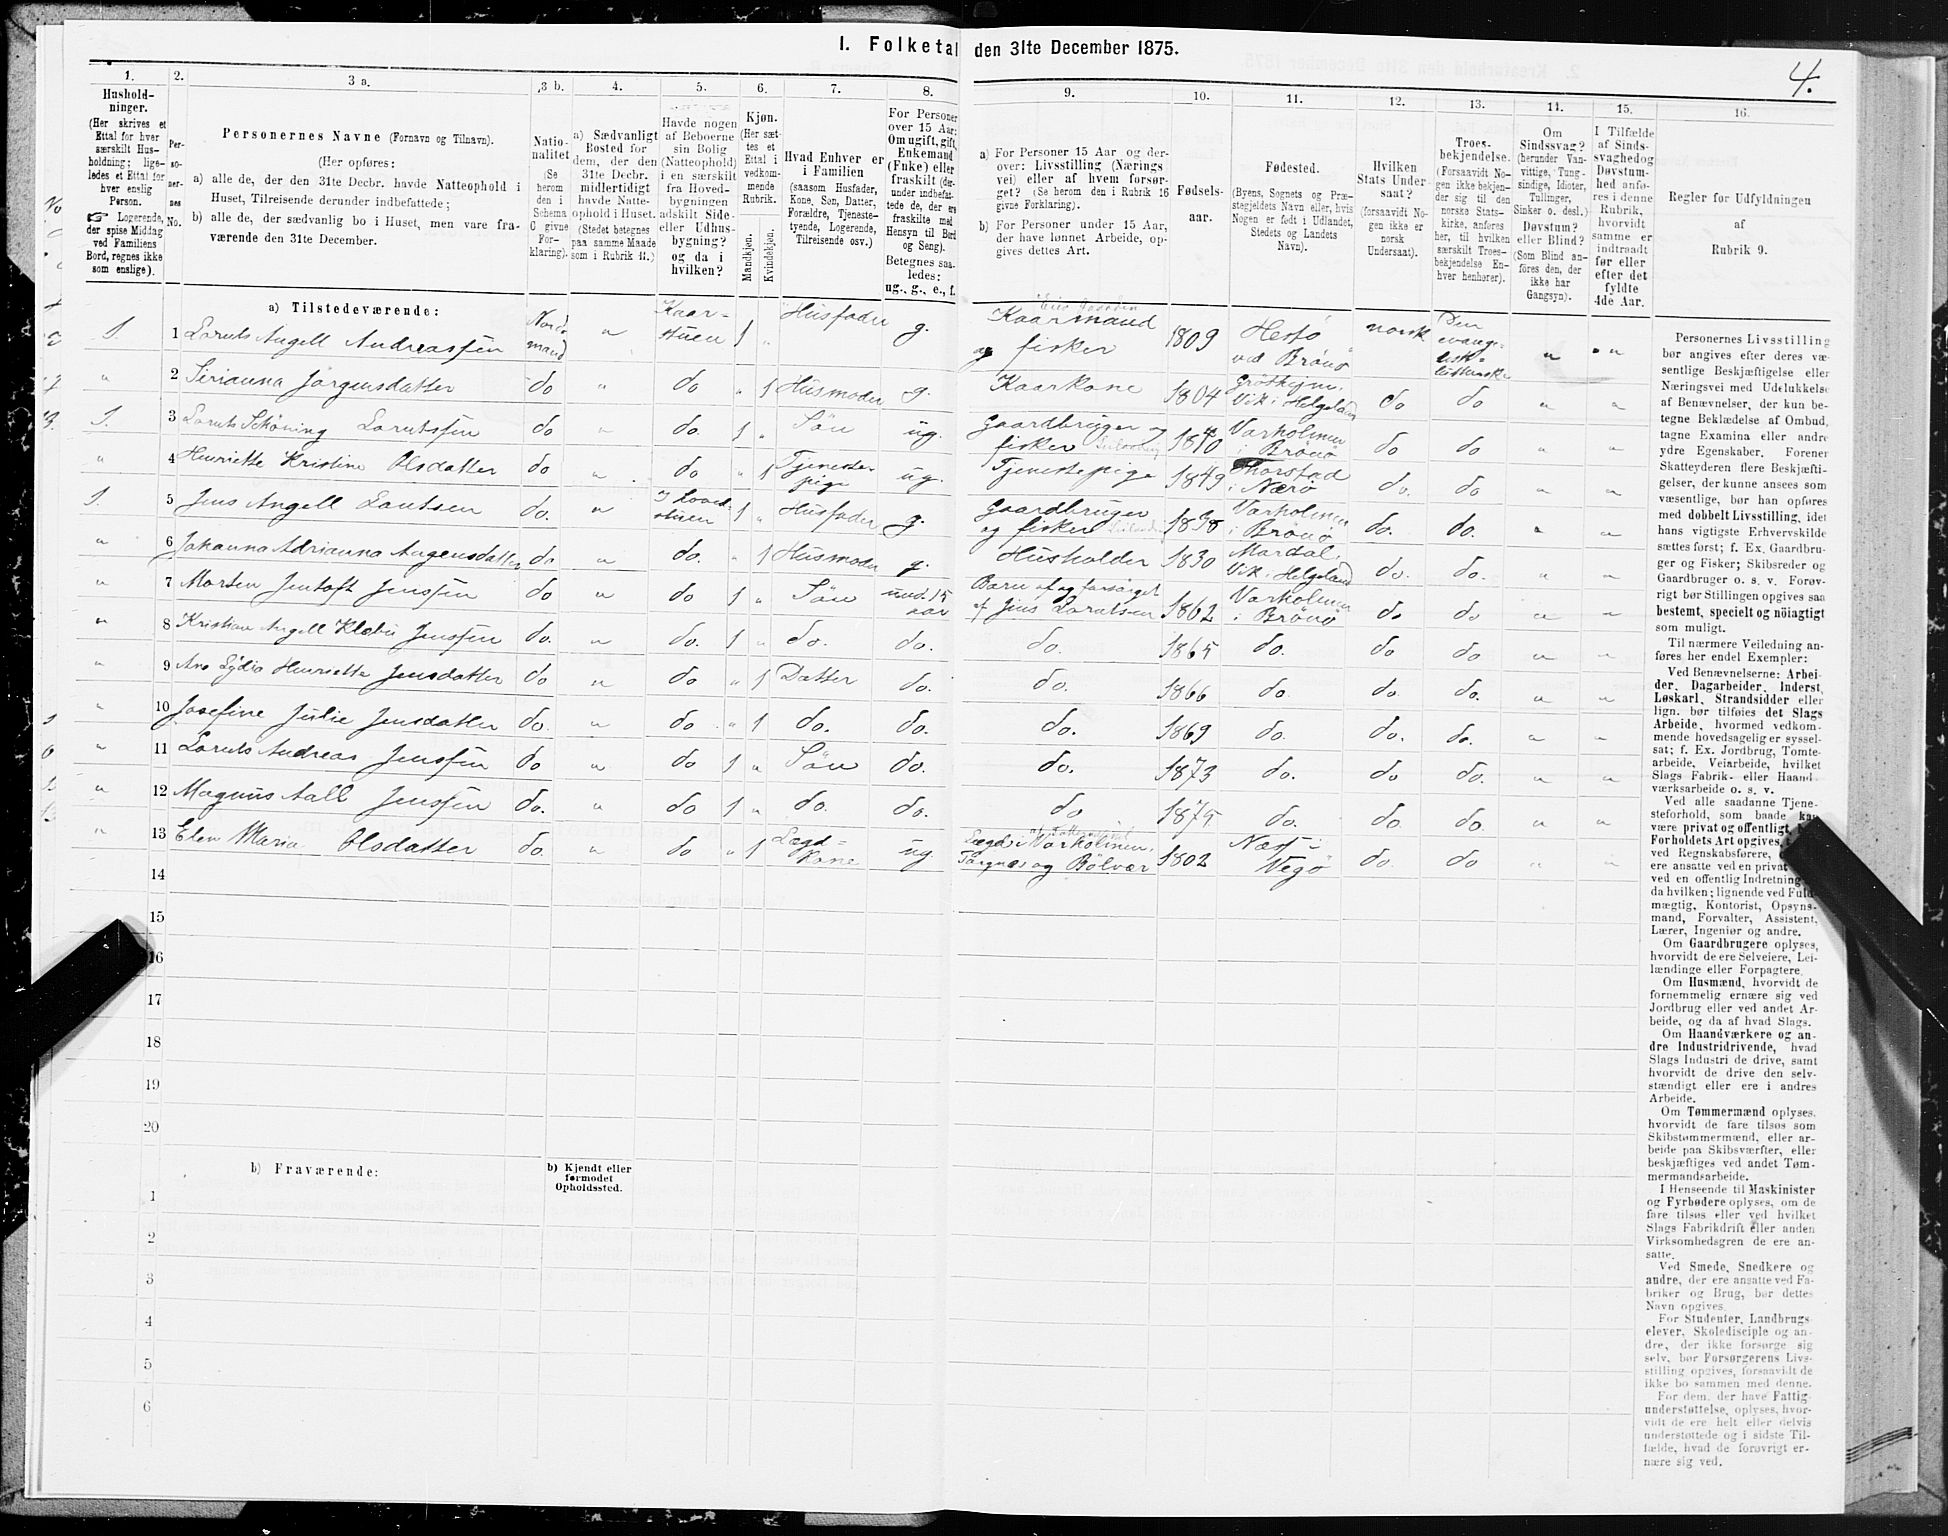 I. Folketal den 31te December 1875.
4.
1.
Hushold-
ninger.
(Her skrives et
Ettal for hver
særskilt Hus-
holdning; lige-
ledes et Ettal for
hver enslig
Person.
☞ Logerende,
der spise Middag
ved Familiens
Bord, regnes ikke
som enslige).
2.
Per-
so-
ner-
nes
No.
3 a.
Personernes Navne (Fornavn og Tilnavn).
(Her opføres:
a) alle de, der den 31te Decbr. havde Natteophold i
Huset, Tilreisende derunder indbefattede;
b) alle de, der sædvanlig bo i Huset, men vare fra-
værende den 31te December.
3 b.
Natio-
nalitet
(Se
herom
den i
Schema
C givne
For-
klaring).
4.
a) Sædvanligt
Bosted for
dem, der den
31te Decbr.
midlertidigt
havde Natte-
ophold i Huset.
(Stedet betegnes
paa samme Maade
som i Rubrik 11.)
5.
Havde nogen
af Beboerne
sin Bolig
(Natteophold)
i en særskilt
fra Hoved-
bygningen
adskilt Side-
eller Udhus-
bygning?
og da i
hvilken?
6.
Kjøn.
(Her sæt-
tes et
Ettal i
vedkom-
mende
Rubrik.
Mandkjøn.
Kvindekjøn.
7.
Hvad Enhver er
i Familien
(saasom Husfader,
Kone, Søn, Datter,
Forældre, Tjeneste-
tyende, Logerende,
Tilreisende osv.)
8.
For Personer
over 15 Aar:
Om ugift, gift,
Enkemand
(Enke) eller
fraskilt (der-
under indbefat-
tede de, der ere
fraskilte med
Hensyn til Bord
og Seng).
Betegnes saa-
ledes:
ug., g., e., f.
9.
a) For Personer 15 Aar og der-
over: Livsstilling (Nærings-
vei) eller af hvem forsør-
get? (Se herom den i Rubrik 16
givne Forklaring).
b) For Personer under 15 Aar,
der have lønnet Arbeide, op-
gives dettes Art.
10.
Fødsels-
aar.
11.
Fødested.
(Byens, Sognets og Præ-
stegjeldets Navn eller, hvis
Nogen er født i Udlandet,
Stedets og Landets
Navn).
12.
Hvilken
Stats Under-
saat?
(forsaavidt No-
gen ikke er
norsk
Undersaat).
13.
Troes-
bekjendelse.
(Forsaavidt No-
gen ikke bekjen-
der sig til den
norske Stats-
kirke, anføres
her, til hvilken
særskilt Troes-
bekjendelse En-
hver henhører).
14.
Om
Sindssvag?
(herunder Van-
vittige, Tung-
sindige, Idioter,
Tullinger,
Sinker o. desl.)
Døvstum?
eller Blind?
(Som Blind an-
føres den, der
ikke har
Gangsyn).
15.
I Tilfælde
af Sinds-
svaghed og
Døvstum-
hed anfø-
res i denne
Rubrik,
hvorvidt
samme er
indtraadt
før eller
efter det
fyldte
4de Aar.
16.
Regler for Udfyldningen
af
Rubrik 9.
a) Tilstedeværende:
1. 1 Loruts Angell Andreassen Nord-mand " Kaar-stuen 1 " Husfader g. Kaarmand og fisker 1809 Hestø ved Brønø norsk Den evange-lisk-lutherske " "
" 2 Serianna Jørgensdatter do " do " 1 Husmoder g. Kaarkone 1804 Vik i Helgeland do do " "
1. 3 Loruts Schöning Lorutssen do " do. 1 " Søn ug. Gaardbruger og fisker 1840 Varholmen i Brønø do do " "
" 4 Henriette Kristine Olsdatter do " do " 1 Tjeneste-pige ug. Tjenestepige 1849 Thorstad i Nærø do. do " "
1. 5 Jens Angell Lorutssen do. " I hoved-stuen 1 " Husfader g. Gaardbruger og fisker 1838 Varholmen i Brønø do. do. " "
" 6 Johanna Adrianna Augensdatter do " do. " 1 Husmoder g. Husholder 1830 Mardal, Vik i Helgeland do. do. " "
" 7 Morten Jentoft Jenssen do " do 1 " Søn und. 15 aar Barn af og forsørget af Jens Lorutssen 1862 Varholmen i Brønø do do " "
" 8 Kristian Angell Klæbu Jenssen do. " do. 1 " do. do. do. 1865 do. do do " "
" 9 Ane Lydia Henriette Jensdatter do " do " 1 Datter do. do. 1866 do. do. do. " "
" 10 Josefine Julie Jensdatter do. " do " 1 do. do. do. 1869 do. do. do. " "
" 11 Loruts Andreas Jenssen do " do 1 " Søn do. do. 1873 do. do do. " "
" 12 Magnus Aall Jenssen do. " do 1 " do. do. do 1875 do. do. do. " "
" 13 Elen Maria Olsdatter do. " do " 1 Lægd-Kone ug. Lægd i Varholmen, Torgnæs og Bølvær 1802 Næs i Vegø do. do " "
14
15
16
17
18
19
20
b) Fraværende:
b) Kjendt eller
formodet
Opholdssted.
1
2
3
4
5
6
Personernes Livsstilling
bør angives efter deres væ-
sentlige Beskjæftigelse eller
Næringsvei med Udelukkelse
af Benævnelser, der kun be-
tegne Beklædelse af Ombud,
tagne Examina eller andre
ydre Egenskaber. Forener
Skatteyderen flere Beskjæfti-
gelser, der kunne ansees som
væsentlige, bør han opføres
med dobbelt Livsstilling, idet
hans vigtigste Erhvervskilde
sættes først; f. Ex. Gaardbru-
ger og Fisker; Skibsreder og
Gaardbruger o. s. v. Forøv-
rigt bør Stillingen opgives saa
bestemt, specielt og nøiagtigt
som muligt.
Til nærmere Veiledning an-
føres her endel Exempler:
Ved Benævnelserne: Arbei-
der, Dagarbeider, Inderst,
Løskarl, Strandsidder eller
lign. bør tilføies det Slags
Arbeide, hvormed vedkom-
mende hovedsagelig er syssel-
sat; f. Ex. Jordbrug, Tomte-
arbeide, Veiarbeide, hvilket
Slags Fabrik- eller Haand-
værksarbeide o. s. v.
Ved alle saadanne Tjene-
steforhold, som baade kan
være privat og offentligt,
Forholdets Art opgives,
ved Regnskabsførere,
ere ansatte ved en privat
ved en offentlig Indretning
da hvilken; lignende ved Fuld-
mægtig, Kontorist, Opsyns-
mand, Forvalter, Assistent,
Lærer, Ingeniør og andre.
Om Gaardbrugere oplyses,
hvorvidt de ere Selveiere, Lei-
lændinge eller Forpagtere.
Om Husmænd, hvorvidt de
fornemmelig ernære sig ved
Jordbrug eller ved andet Ar-
beide, og da af hvad Slags.
Om Haandværkere og an-
dre Industridrivende, hvad
Slags Industri de drive, samt
hvorvidt de drive den selv-
stændigt eller ere i andres
Arbeide.
Om Tømmermænd oplyses,
hvorvidt de fare tilsøs som
Skibstømmermænd, eller ar-
beide paa Skibsværfter, eller
beskjæftiges ved andet Tøm-
mermandsarbeide.
I Henseende til Maskinister
og Fyrbødere oplyses, om de
fare tilsøs eller ved hvilket
Slags Fabrikdrift eller anden
Virksomhedsgren de ere an-
satte.
Ved Smede, Snedkere og
andre, der ere ansatte ved Fa-
briker og Brug, bør dettes
Navn opgives.
For Studenter, Landbrugs-
elever, Skoledisciple og an-
dre, der ikke forsørge sig
selv, bør Forsørgerens Livs-
stilling opgives, forsaavidt de
ikke bo sammen med denne.
For dem, der have Fattig-
understøttelse, oplyses, hvor-
vidt de ere helt eller delvis
understøttede og i sidste Til-
fælde, hvad de forøvrigt er-
nære sig ved.